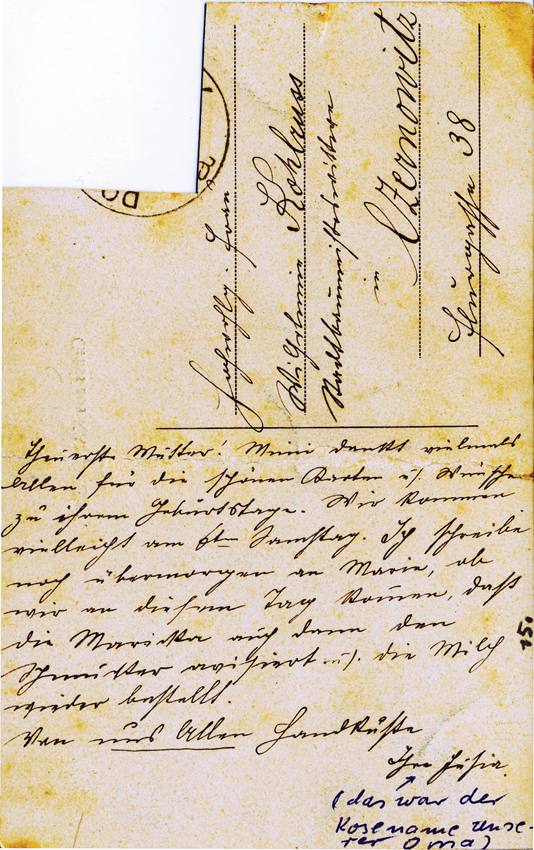 Hochwohlg. Frau
Wilhelmine Kohlruss
Stadtbaumeisterswitwe
in
Czernowitz
Flurgasse 38
Theuerste Mutter! Mimi dankt vielmals
Allen für die schönen Karten u. Wünsche
zu ihrem Geburtstage. Wir kommen
vielleicht am 6ten Samstag. Ich schreibe
noch übermorgen an Marie, ob
wir an diesem Tag kommen, daß
die Maricka auch dann den
avisiert u. die Milch
wieder bestellt.
Von uns Allen Handküsse
Ihre
15.
(das war der
Kosename unse-
rer Oma)